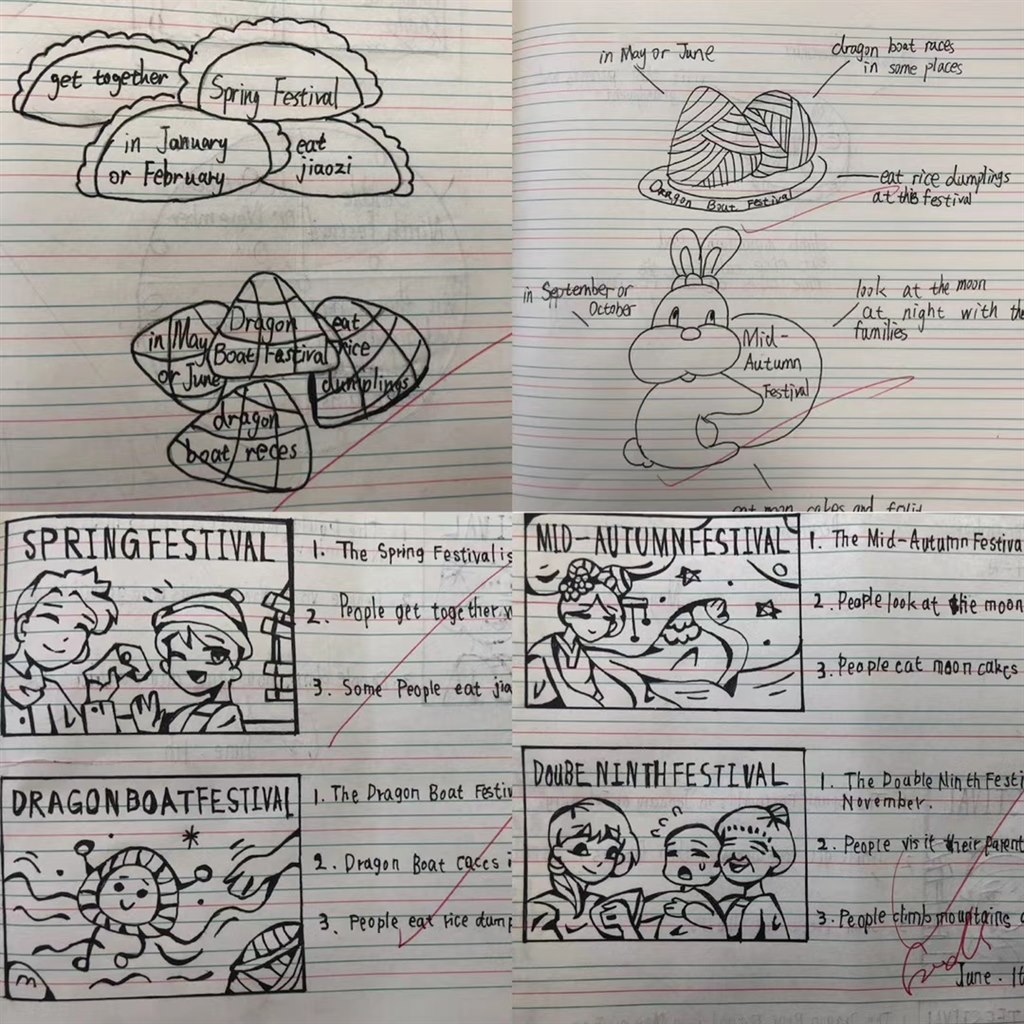 get together
Spring Festival
in January
or February
eat
jiaozi
in May
or June
Dragon
Boat Fastival
eat
rice
dumplings
dragon
boat reces
in May or June
dragon boat races
in some places
eat rice dumplings
at this festival
Dragon Boat Festival
in September or
October
look at the moon
at night with the
families
Mid-
Autumn
Festival
SPRING FESTIVAL
1. The Spring Festival is
2. People get together
3. Some People eat
DRAGON BOAT FESTIVAL
1. The Dragon Boat
2. Dragon Boat
3. People eat rice
MID-AUTUMN FESTIVAL
1. The Mid-Autumn
2. People look at the moon
3. People eat moon cakes
DOUBE NINTH FESTIVAL
1. The Double Ninth
November.
2. People visit their
3. People climb mountains
Good
June.